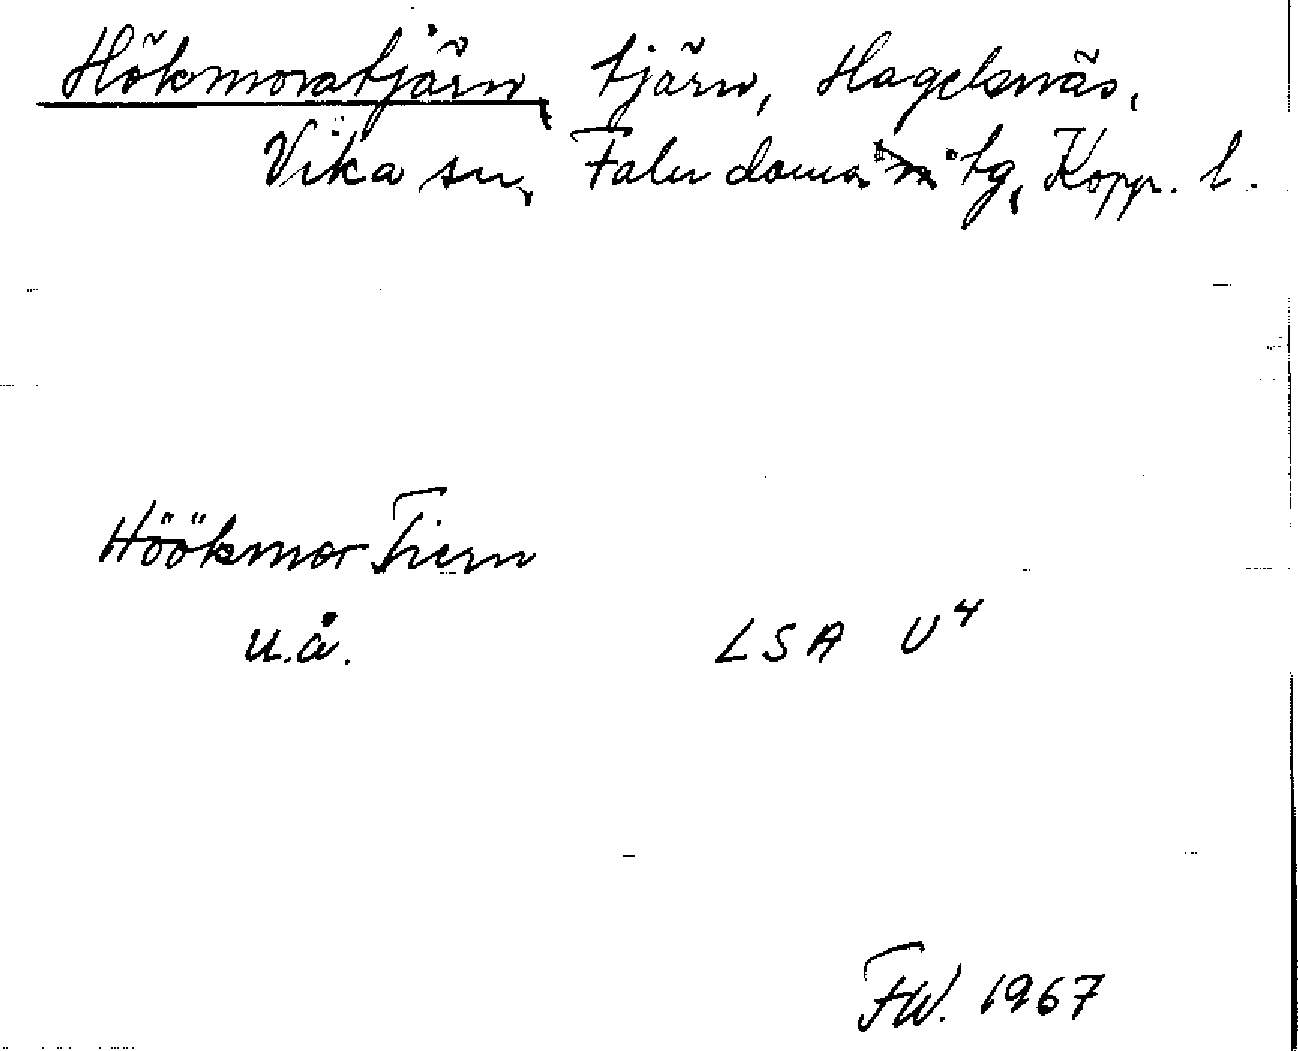 Hökmoratjärn, tjärn, Hagelsnäs,
Vika sn, Falu domsaga tg, Kopp. l.
Höökmor Tiern
u.å. LSA U⁴
FW. 1967